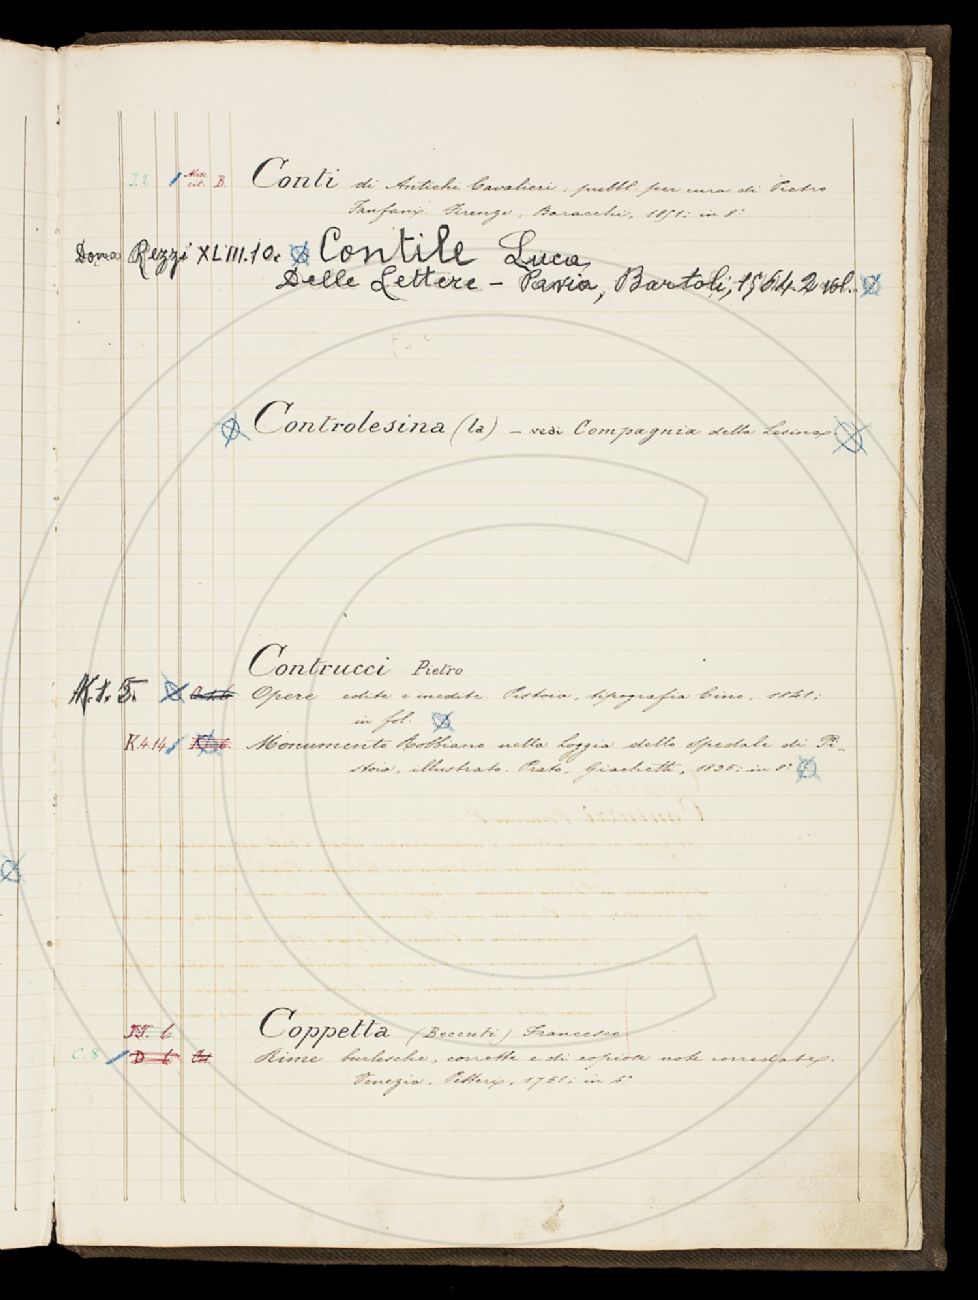 I.2 Misc. cit. B. Conti di Antichi Cavalieri: pubbl. per cura di Pietro
Fanfani. Firenze, Baracchi, 1851; in 8°
Dono Rezzi XLIII.10. Contile Luca
Delle Lettere - Pavia, Bartoli, 1564. 2 vol.
Controlesina (la) - vedi Compagnia della Lesina.
Contrucci Pietro
K.1.5. Opere edite e inedite. Pistoia, tipografia Cino, 1841;
in fol.
K.4.14 Monumento Robbiano nella Loggia dello Spedale di Pi-
stoia, illustrato. Prato, Giachetti, 1835; in 8°
6 Coppetta (Beccuti) Francesco
C.8 D 6 Rime burlesche, corrette e di copiose note corredate.
Venezia, Pitteri, 1751; in 4°